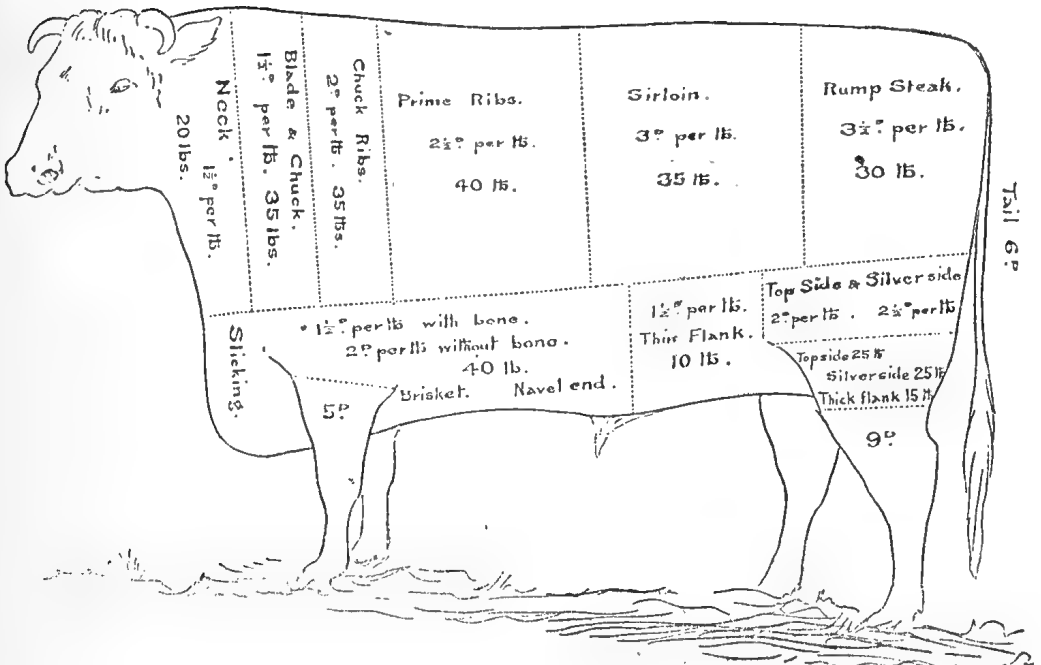 Neck. 1½ᴰ per lb.
20 lbs.
Blade & Chuck.
1½ᴰ per lb. 35 lbs.
Chuck Ribs.
2ᴰ per lb. 35 lbs.
Prime Ribs.
2½ᴰ per lb.
40 lb.
Sirloin.
3ᴰ per lb.
35 lb.
Rump Steak.
3½ᴰ per lb.
30 lb.
Tail 6ᴰ
Sticking.
1½ᴰ per lb with bone.
2ᴰ per lb without bone.
40 lb.
Brisket. Navel end.
5ᴰ
1½ᴰ per lb.
Thin Flank.
10 lb.
Top Side & Silverside
2ᴰ per lb. 2½ᴰ per lb
Topside 25 lb
Silverside 25 lb
Thick flank 15 lb
9ᴰ